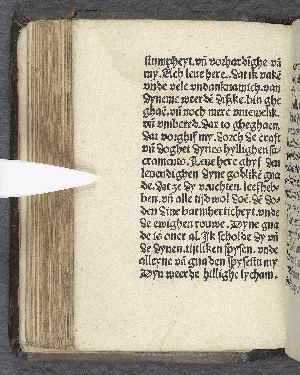 stumpheyt. vñ vorhardighe vñ
my. Och leue here. Dat ik vakẽ
vnde vele vndanknamich. van
dyneme weerdẽ disske. bin ghe
ghaẽ. vñ noch mere vnewelik.
vñ vmbered. dar to ghegaen.
Dat vorghif my. Dorch de craft
vñ doghet dynes hyllighen sa
cramentes. Leue here ghyf den
leuendighen dyne godlike gna
de. Dat ze dy vruchten. leef heb
ben. vñ alle tijd wol doẽ. de do
den dine barmherticheyt. vnde
de ewighen rouwe. Dyne gna
de is ouer al. Ik scholde dy vñ
de dynen. tijtliken spysen. vnde
alleyne vñ gnaden spysestu my
Dyn weerde hillighe lycham.